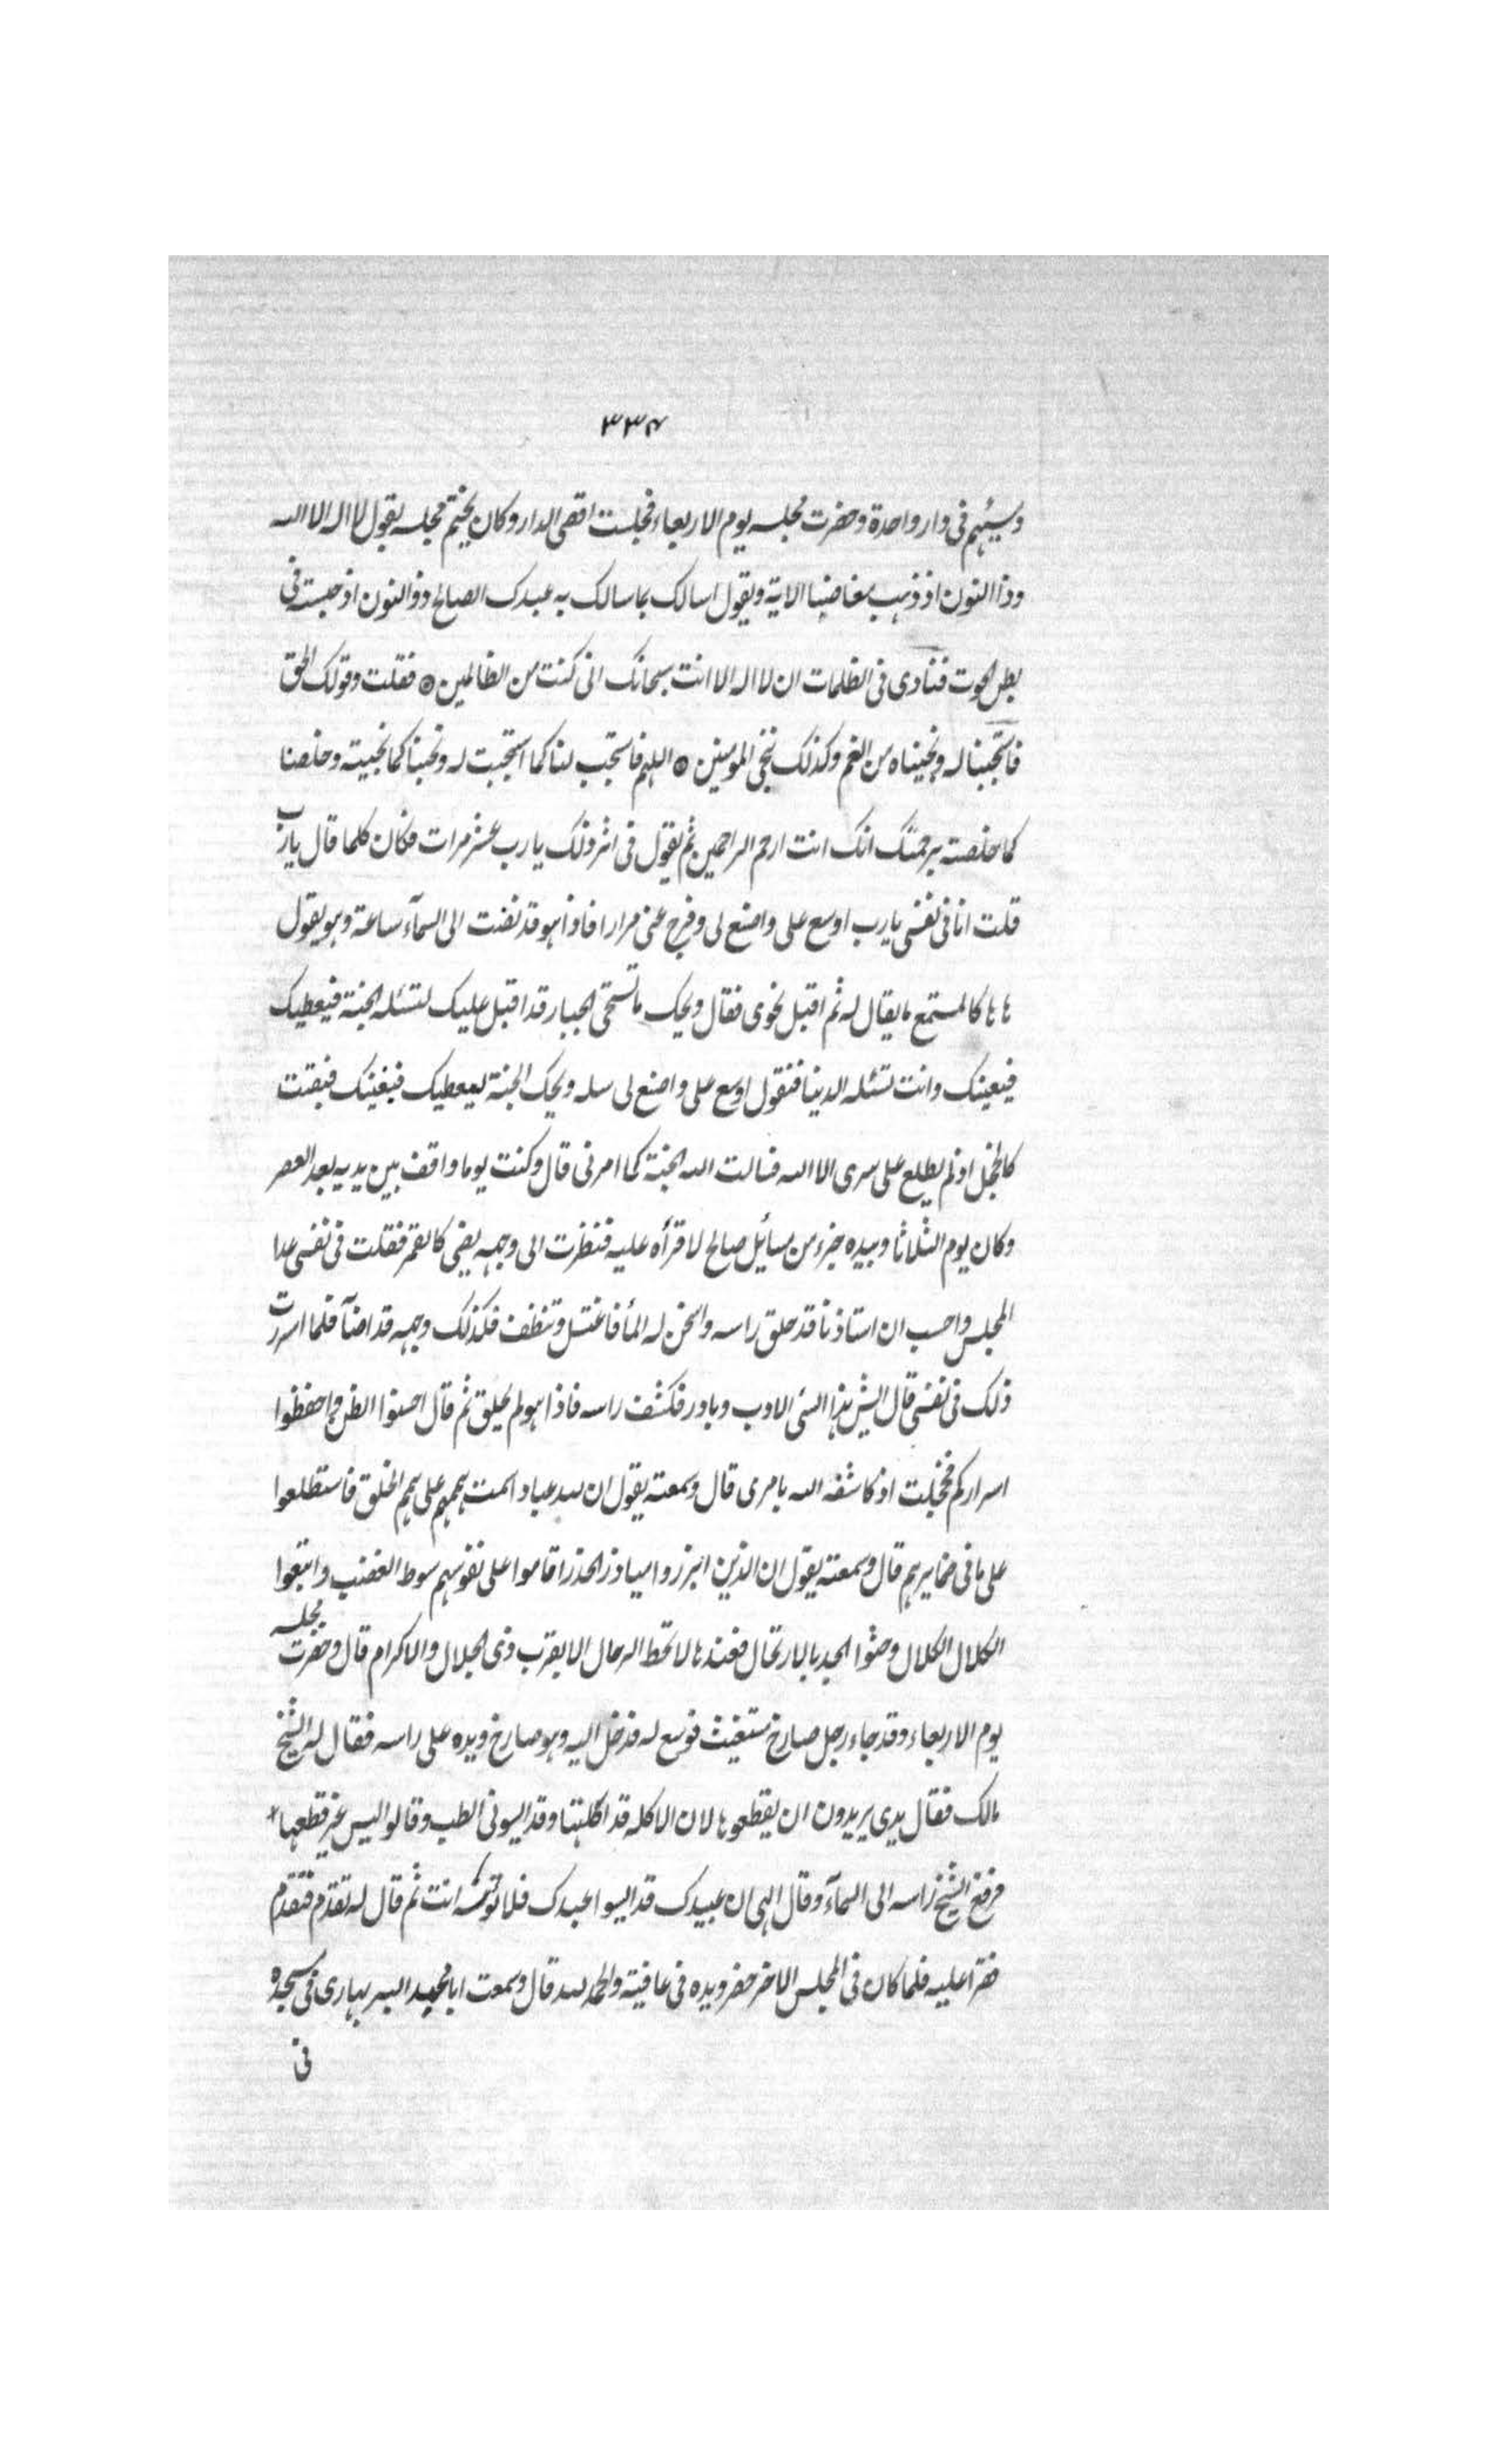 ٣٣٤
ومسيئهم فى دار واحدة وحضرت مجلسه يوم الاربعاء فجلست اقصى الدار وكان يختم مجلسه بقول لا اله الا الله
وذا النون اذ ذهب مغاضبا الاية ويقول اسالك بما سالك به عبدك الصالح ذو النون اذ حبسته فى
بطن الحوت فنادى فى الظلمات ان لا اله الا انت سبحانك انى كنت من الظالمين ۞ فقلت وقولك الحق
فاستجبنا له ونجيناه من الغم وكذلك ننجى المومنين ۞ اللهم فاستجب لنا كما استجبت له ونجنا كما نجيته وخلصنا
كما خلصته برحمتك انك انت ارحم الراحمين ثم يقول فى اثر ذلك يا رب عشر مرات فكان كلما قال يا رب
قلت انا فى نفسى يا رب اوسع على واصنع لى وفرج عنى مرارا فاذا هو قد نفت الى السمآء ساعة وهو يقول
ها ها كالمستمع ما يقال له ثم اقبل نحوى فقال ويحك ما تستحى الجبار قد اقبل عليك لتسئله الجنة فيعطيك
فيغنيك وانت تسئله الدينا فتقول اوسع على واصنع لى سله ويحك الجنة ليعطيك فيغنيك فبقيت
كالخجل اذ لم يطلع على سرى الا الله فسالت الله الجنة كما امرنى قال وكنت يوما واقف بين يديه بعد العصر
وكان يوم الثلاثا وبيده جزء من مسائل صالح لاقرأه عليه فنظرت الى وجهه يضى كالقمر فقلت فى نفسى غدا
المجلس واحسب ان استاذنا قد حلق راسه واسخن له المأ فاغتسل وتنظف فكذلك وجهه قد اضآ فلما اسررت
ذلك فى نفسى قال ايش هذا السئى الادب وبادر فكشف راسه فاذا هو لم يحلق ثم قال احسنوا الظن واحفظوا
اسراركم فخجلت اذ كاشفه الله بامرى قال وسمعته يقول ان لله عباد اسمت هممهم على همم الخلق فاستطلعوا
على ما فى ضمايرهم قال وسمعته يقول ان الذين ابرزوا ميادز الحذر اقاموا على نفوسهم سوط الغضب واتبعوا
الكلال الكلال وحثوا الجد بالارتحال فعندها لا تحط الرحال الا بقرب ذى الجلال والاكرام قال وحضرت مجلسه
يوم الاربعاء وقد جاء رجل صارخ مستغيث فوسع له فدخل اليه وهو صارخ ويده على راسه فقال له الشيخ
مالك فقال يدى يريدون ان يقطعوها لان الاكله قد اكلتها وقد ايسونى الطب وقالوا ليس غير قطعها *
فرفع الشيخ راسه الى السمآء وقال الهى ان عبيدك قد ايسوا عبدك فلا تويسه انت ثم قال له تقدم فتقدم
فقرأ عليه فلما كان فى المجلس الاخر حضر ويده فى عافية والحمد لله قال وسمعت ابا محمد البربهارى فى مسجده
فى